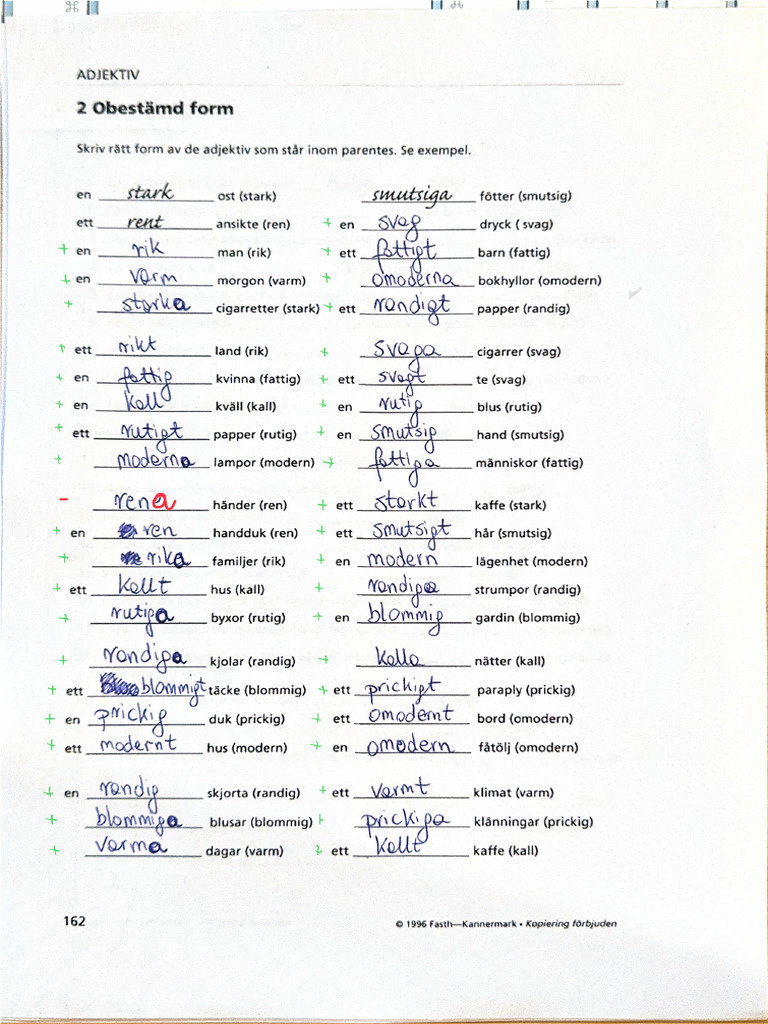 ADJEKTIV
2 Obestämd form
Skriv rätt form av de adjektiv som står inom parentes. Se exempel.
en stark ost (stark)
ett rent ansikte (ren)
+ en rik man (rik)
+ en varm morgon (varm)
+ starka cigarretter (stark)
+ ett rikt land (rik)
+ en fattig kvinna (fattig)
+ en kall kväll (kall)
+ ett rutigt papper (rutig)
+ moderna lampor (modern)
- rena händer (ren)
+ en ren handduk (ren)
+ rika familjer (rik)
+ ett kallt hus (kall)
+ rutiga byxor (rutig)
+ randiga kjolar (randig)
+ ett blommigt täcke (blommig)
+ en prickig duk (prickig)
+ ett modernt hus (modern)
+ en randig skjorta (randig)
+ blommiga blusar (blommig)
+ varma dagar (varm)
smutsiga fötter (smutsig)
+ en svag dryck ( svag)
+ ett fattigt barn (fattig)
+ omoderna bokhyllor (omodern)
+ ett randigt papper (randig)
+ svaga cigarrer (svag)
+ ett svagt te (svag)
+ en rutig blus (rutig)
+ en smutsig hand (smutsig)
+ fattiga människor (fattig)
+ ett starkt kaffe (stark)
+ ett smutsigt hår (smutsig)
+ en modern lägenhet (modern)
+ randiga strumpor (randig)
+ en blommig gardin (blommig)
+ kalla nätter (kall)
+ ett prickigt paraply (prickig)
+ ett omodernt bord (omodern)
+ en omodern fåtölj (omodern)
+ ett varmt klimat (varm)
+ prickiga klänningar (prickig)
+ ett kallt kaffe (kall)
162
© 1996 Fasth—Kannermark • Kopiering förbjuden